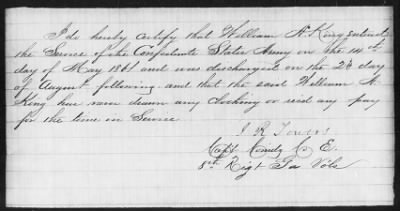 I do hereby certify that William A. King entered
the Service of the Confederate States Army on the 14th
day of May 1861 and was discharged on the 23 day
of August following and that the said William A.
King has never drawn any Clothing or recd any pay
for the time in Service
J R Towers
Capt Comdg Co E.
8th Regt Ga Vols